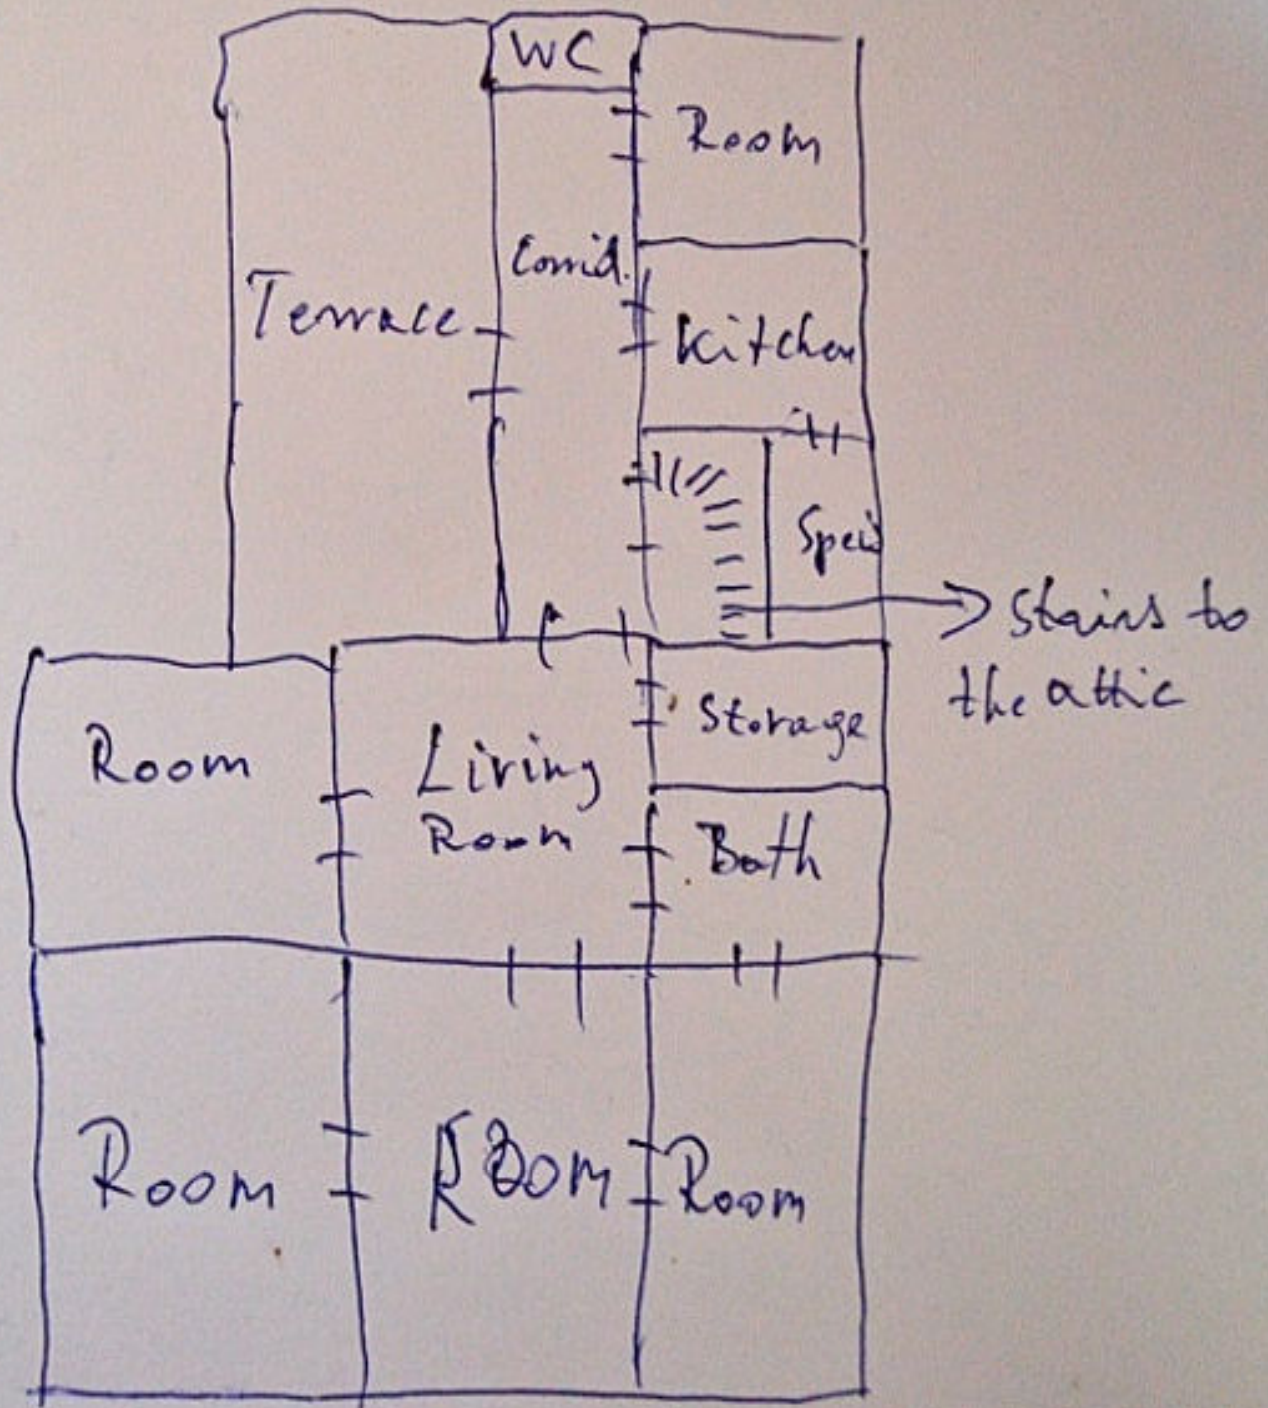 WC
Room
Corrid.
Terrace
Kitchen
Speis
Stairs to
the attic
Room
Living
Room
Storage
Bath
Room
Room
Room